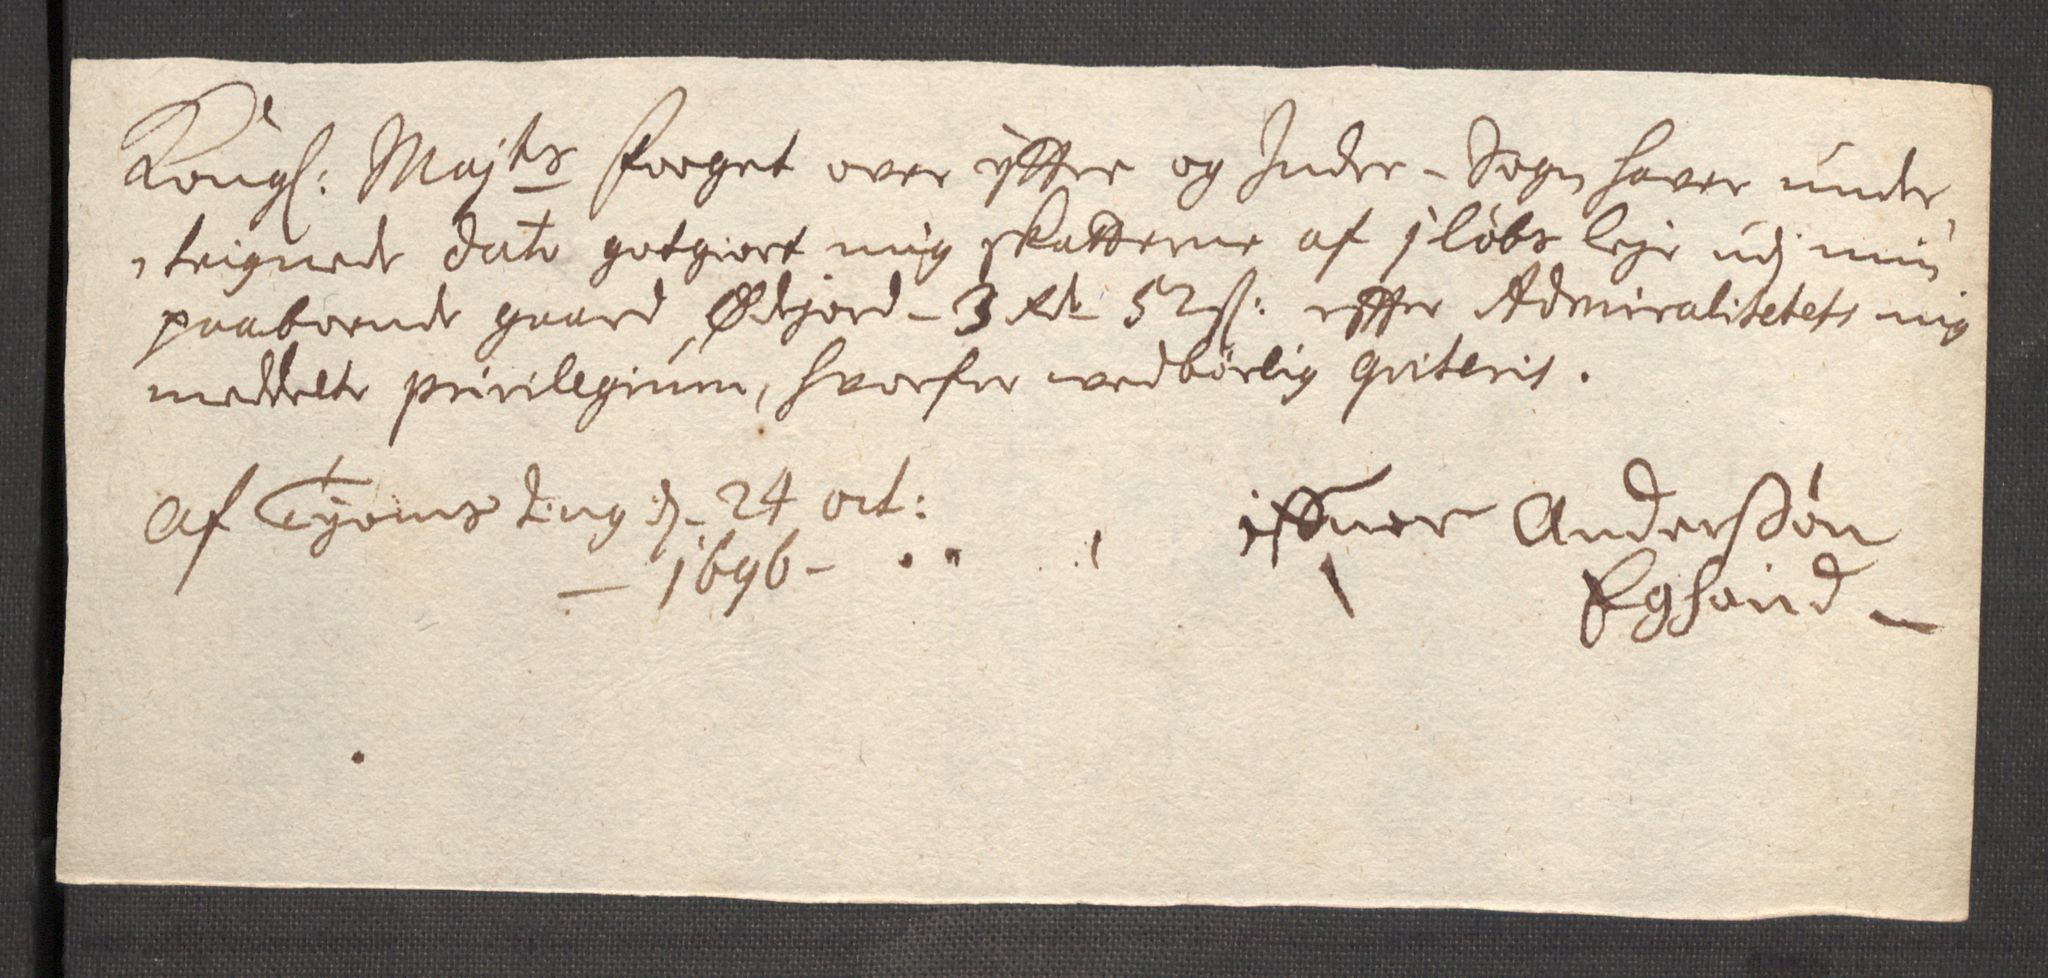 Kongl: Majts Foeget over ytter og Inder-Sogn haver under
teignede dato gotgiort mig skatterne af 1 löbs leje udj min
paaboende gaard Ødejord - 3 Rdr 52 ß: effter Admiralitetets mig
meddelte privilegium, hvorfor vedbörlig qviteris.
Af ting d. 24 oct:
- 1696 -
Anderssön